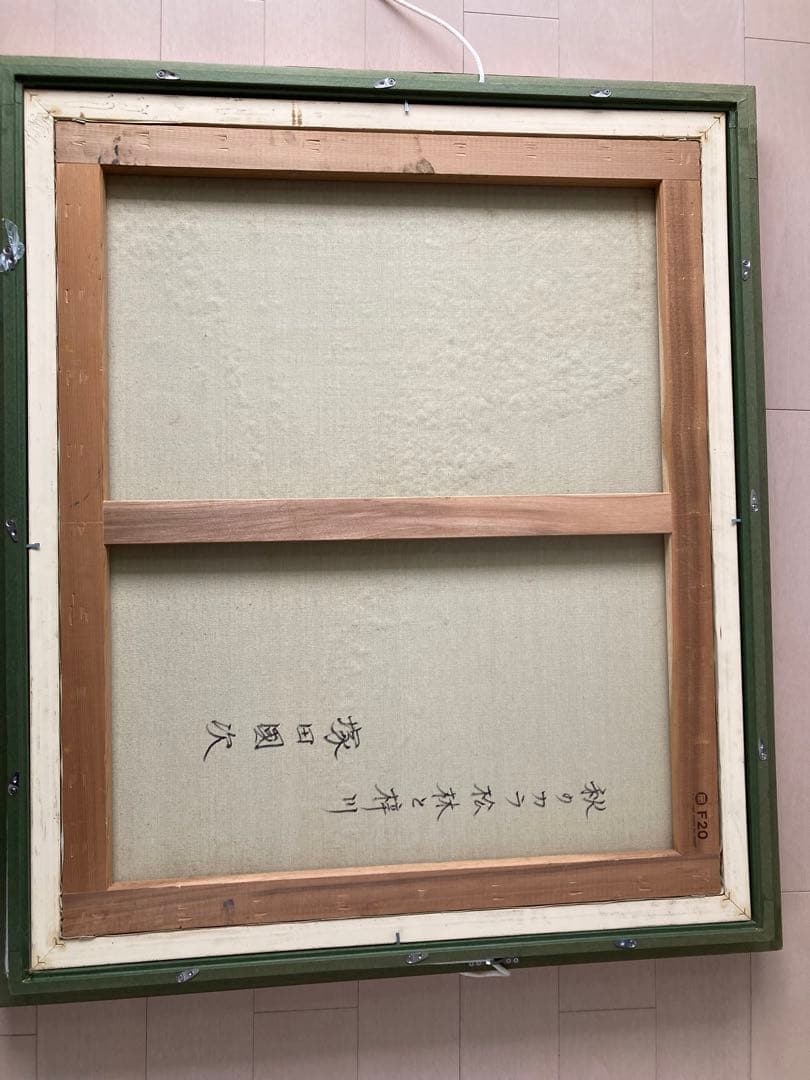 秋のカラ松林と梓川
塚田國次
F20